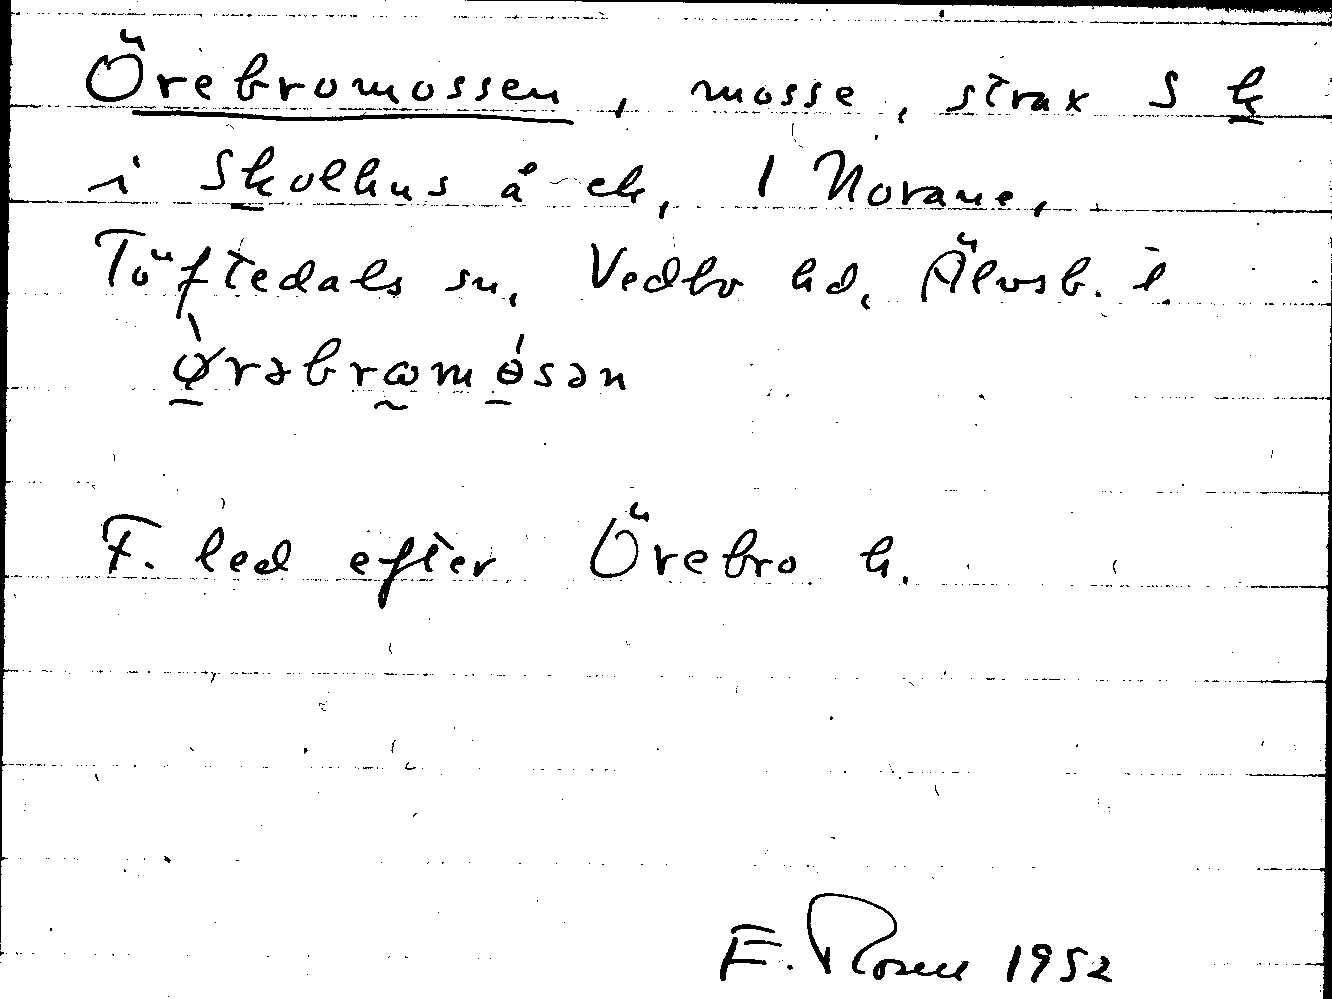 Örebromossen, mosse, strax S k
i Skolhus å ek, 1 Norane,
Töftedals sn, Vedbo hd, Älvsb. l.
ørəbrωmósən
F. led efter Örebro h.
E. Rosell 1952